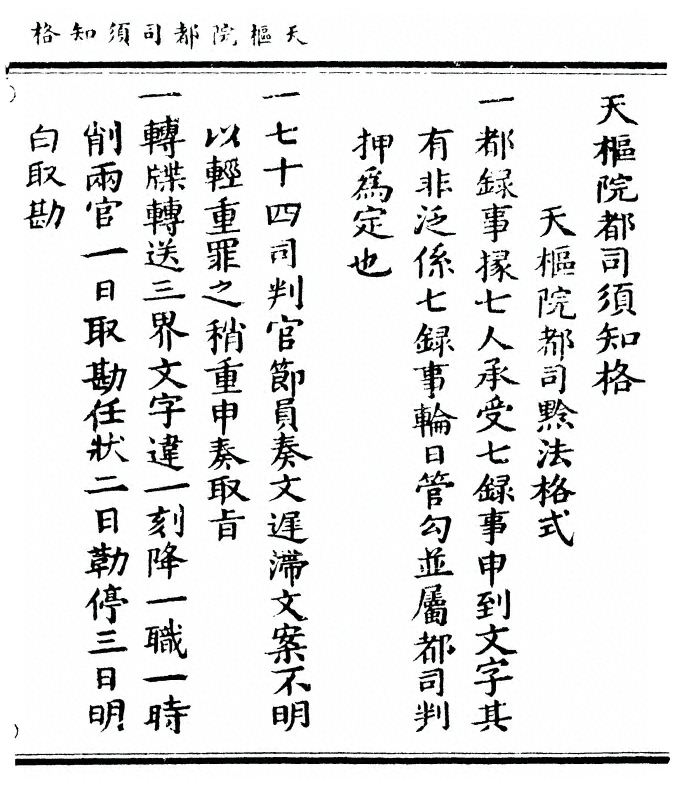 天樞院都司須知格
天樞院都司須知格
天樞院都司黲法格式
一都錄事掾七人承受七錄事申到文字其
有非泛係七錄事輪日管勾並屬都司判
押為定也
一七十四司判官節員奏文遲滯文案不明
以輕重罪之稍重申奏取旨
一轉牒轉送三界文字違一刻降一職一時
削兩官一日取勘任狀二日勒停三日明
白取勘